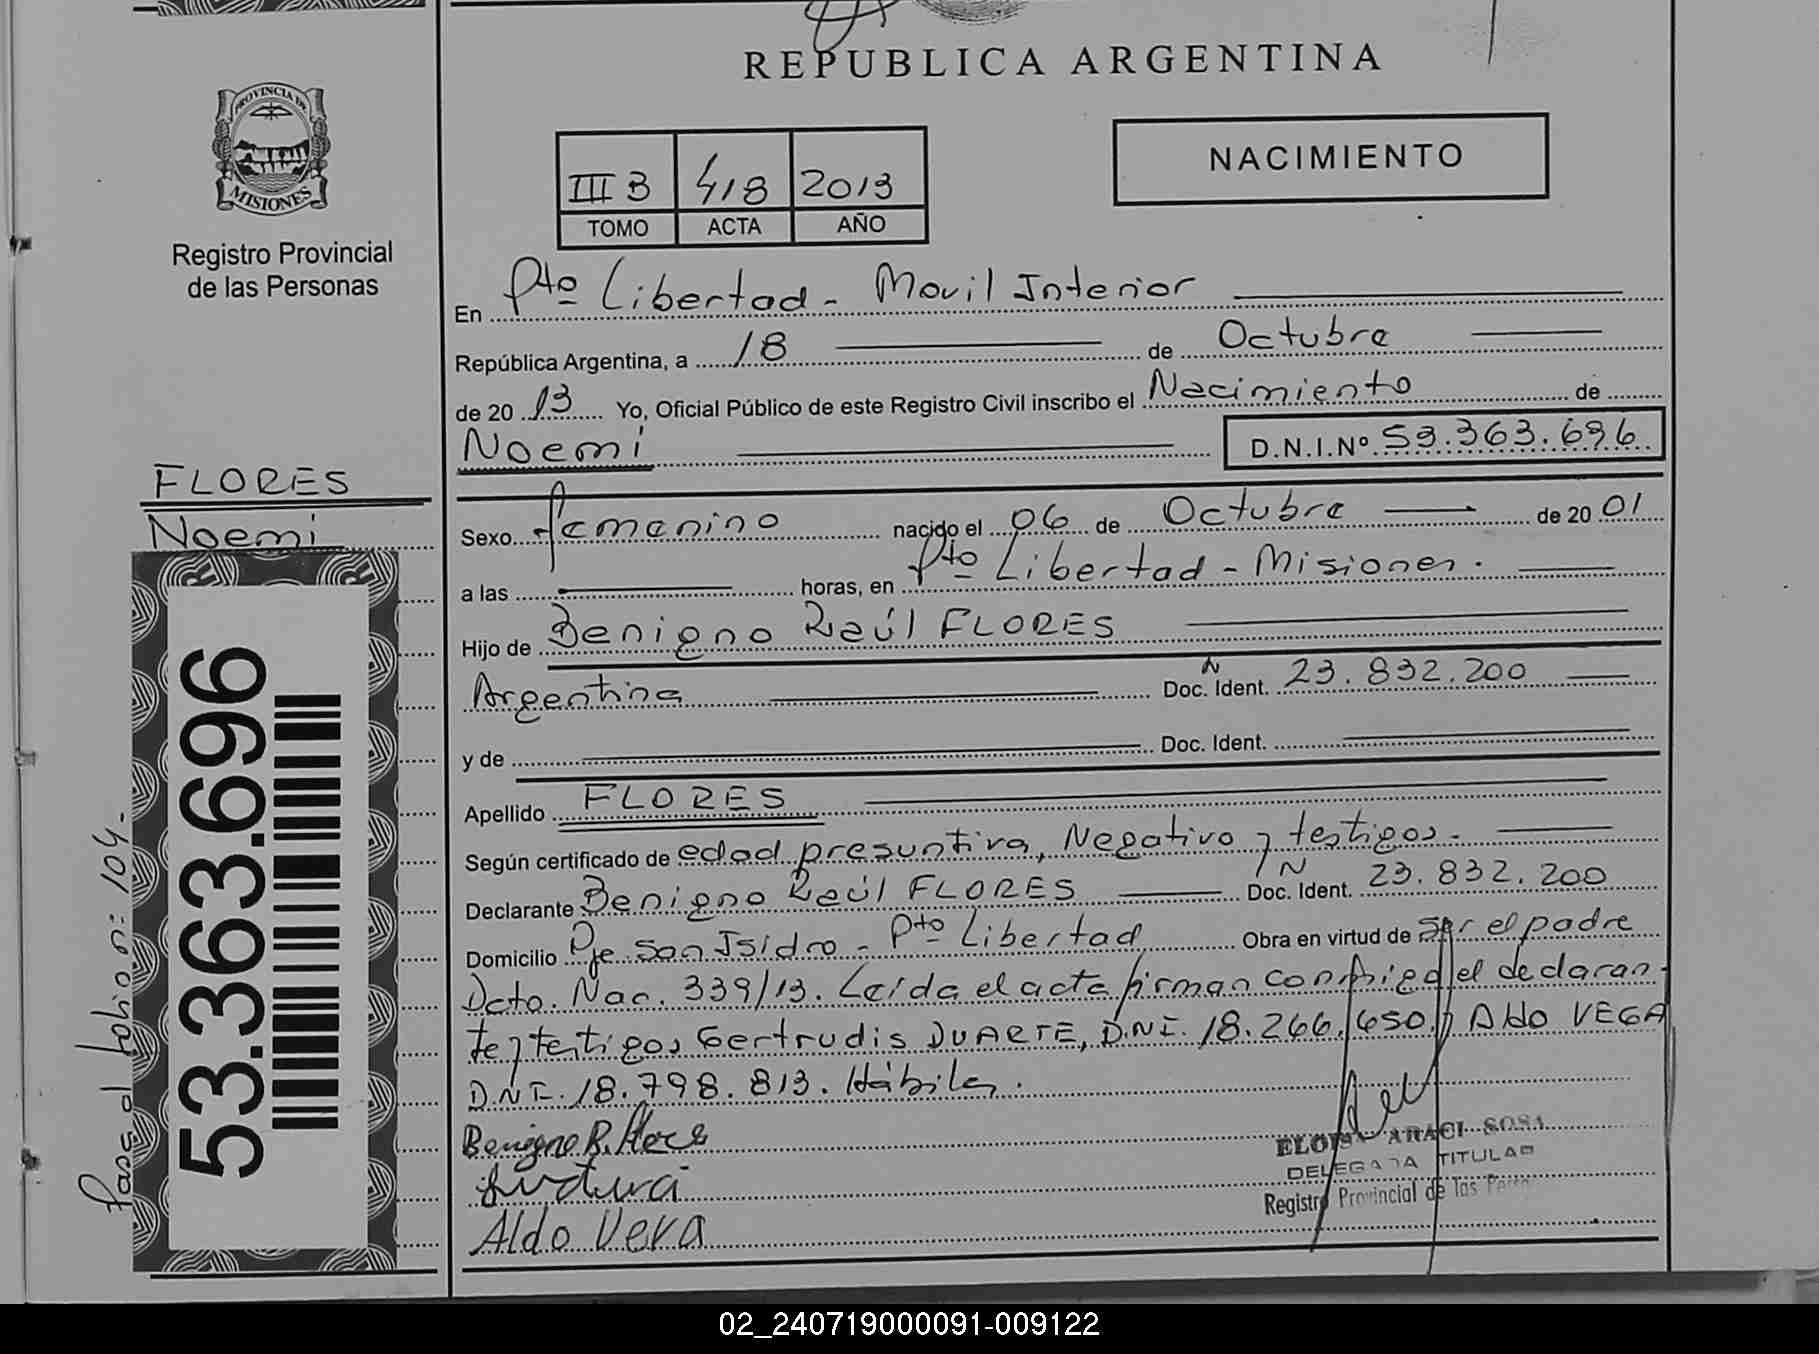 REPUBLICA ARGENTINA
PROVINCIA DE
MISIONES
Registro Provincial
de las Personas
III B 418 2013
TOMO ACTA AÑO
NACIMIENTO
En Pto Libertad - Movil Interior
República Argentina, a 18 de Octubre
de 20 13 Yo, Oficial Público de este Registro Civil inscribo el Nacimiento de
Noemi D.N.I.Nº 53.363.696
FLORES
Noemi
53.363.696
Pasa al folio nº: 104.-
Sexo femenino nacido el 06 de Octubre de 20 01
a las horas, en Pto Libertad - Misiones.
Hijo de Benigno Raúl FLORES
Argentina Doc. Ident. 23.832.200
y de Doc. Ident.
Apellido FLORES
Según certificado de edad presuntiva, Negativo y testigos.-
Declarante Benigno Raúl FLORES Doc. Ident. 23.832.200
Domicilio Pje San Isidro - Pto Libertad Obra en virtud de ser el padre
Dcto. Nac. 339/13. Leída el acta firman conmigo el declaran-
te y testigos Gertrudis DUARTE, D.N.I. 18.266.650 y Aldo VEGA
D.N.I. 18.798.813. Hábiles.
Benigno R.
Aldo Vera
ARACI SOSA
DELEGADA TITULAR
Registro Provincial de las
02_240719000091-009122